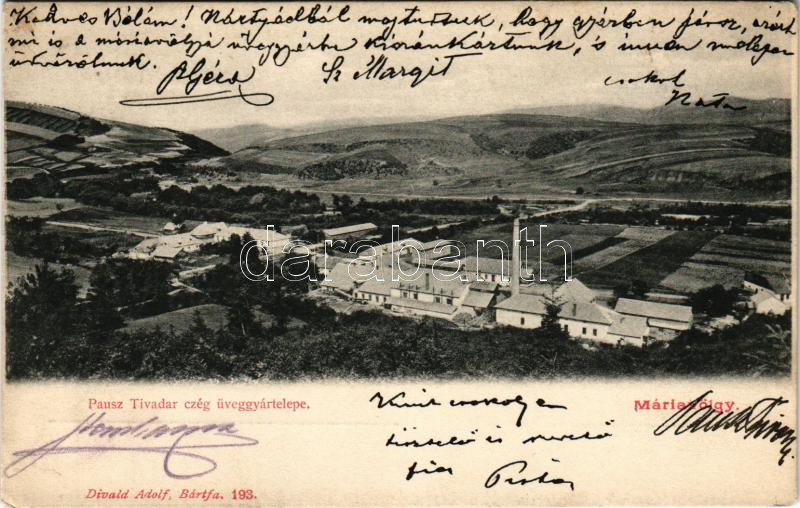 Kedves Bélám! Nártyádból megtudtuk, hogy győrben jársz, azért
mi is a máriavölgyi üveggyárba kirándultunk, s innen melegen
üdvözölünk.
Géza Sz Margit
csokol
Nata
darabanth
Pausz Tivadar czég üveggyártelepe.
Máriavölgy.
Kint csokolyen
tisztelő és szerető
fia
Pista
Divald Adolf, Bártfa. 193.